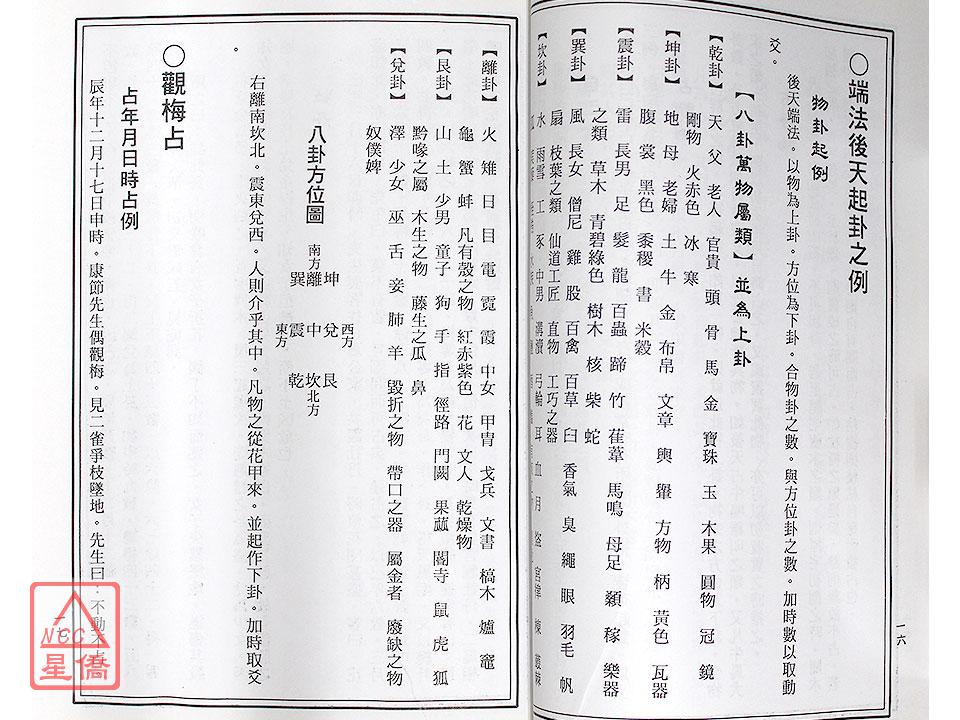 ○端法後天起卦之例
物卦起例
後天端法。以物為上卦。方位為下卦。合物卦之數。與方位卦之數。加時數以取動
爻。
【八卦萬物屬類】並為上卦
【乾卦】 天 父 老人 官貴 頭 骨 馬 金 寶珠 玉 木果 圓物 冠 鏡
剛物 火赤色 冰 寒
【坤卦】 地 母 老婦 土 牛 金 布帛 文章 輿 轝 方物 柄 黃色 瓦器
腹 裳 黑色 黍稷 書 米穀
【震卦】 雷 長男 足 髮 龍 百蟲 蹄 竹 萑葦 馬鳴 母足 顙 稼 樂器
之類 草木 青碧綠色 樹木 核 柴 蛇
【巽卦】 風 長女 僧尼 雞 股 百禽 百草 臼 香氣 臭 繩 眼 羽毛 帆
扇 枝葉之類 仙道工匠 直物 工巧之器
【坎卦】 水 雨雪 工 豕 中男 溝瀆 弓輪 耳 血 月 盜 宮律 棟 叢棘
一六
【離卦】 火 雉 日 目 電 霓 霞 中女 甲冑 戈兵 文書 槁木 爐 竈
龜 蟹 蚌 凡有殼之物 紅赤紫色 花 文人 乾燥物
【艮卦】 山 土 少男 童子 狗 手 指 徑路 門闕 果蓏 閽寺 鼠 虎 狐
黔喙之屬 木生之物 藤生之瓜 鼻
【兌卦】 澤 少女 巫 舌 妾 肺 羊 毀折之物 帶口之器 屬金者 廢缺之物
奴僕婢
八卦方位圖
南方
巽離坤
東方 震中兌 西方
乾坎艮
北方
右離南坎北。震東兌西。人則介乎其中。凡物之從花甲來。並起作下卦。加時取爻
。
○觀梅占
占年月日時占例
辰年十二月十七日申時。康節先生偶觀梅。見二雀爭枝墜地。先生曰。不動不占
一七
NCC
星僑